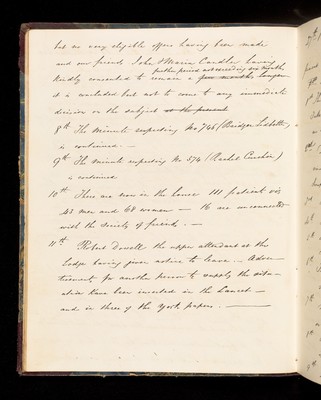 but no very eligible offers having been made
and our friends John & Maria Candler having
further period not exceeding six months
kindly consented to remain a few months longer
it is concluded but not to come to any immediate
decision on the subject at the present
8th The minute respecting No 746 (Bridget
is continued. —
9th The minute respecting No 574 (Rachel
is continued
10th There are now in the house 111 patients viz
43 men and 68 women — 16 are unconnected
with the Society of friends. —
11th Robert the upper attendant at the
Lodge having given notice to leave. — Adver-
tisements for another person to supply the situ-
ation have been inserted in the Lancet —
and in three of the York papers. —